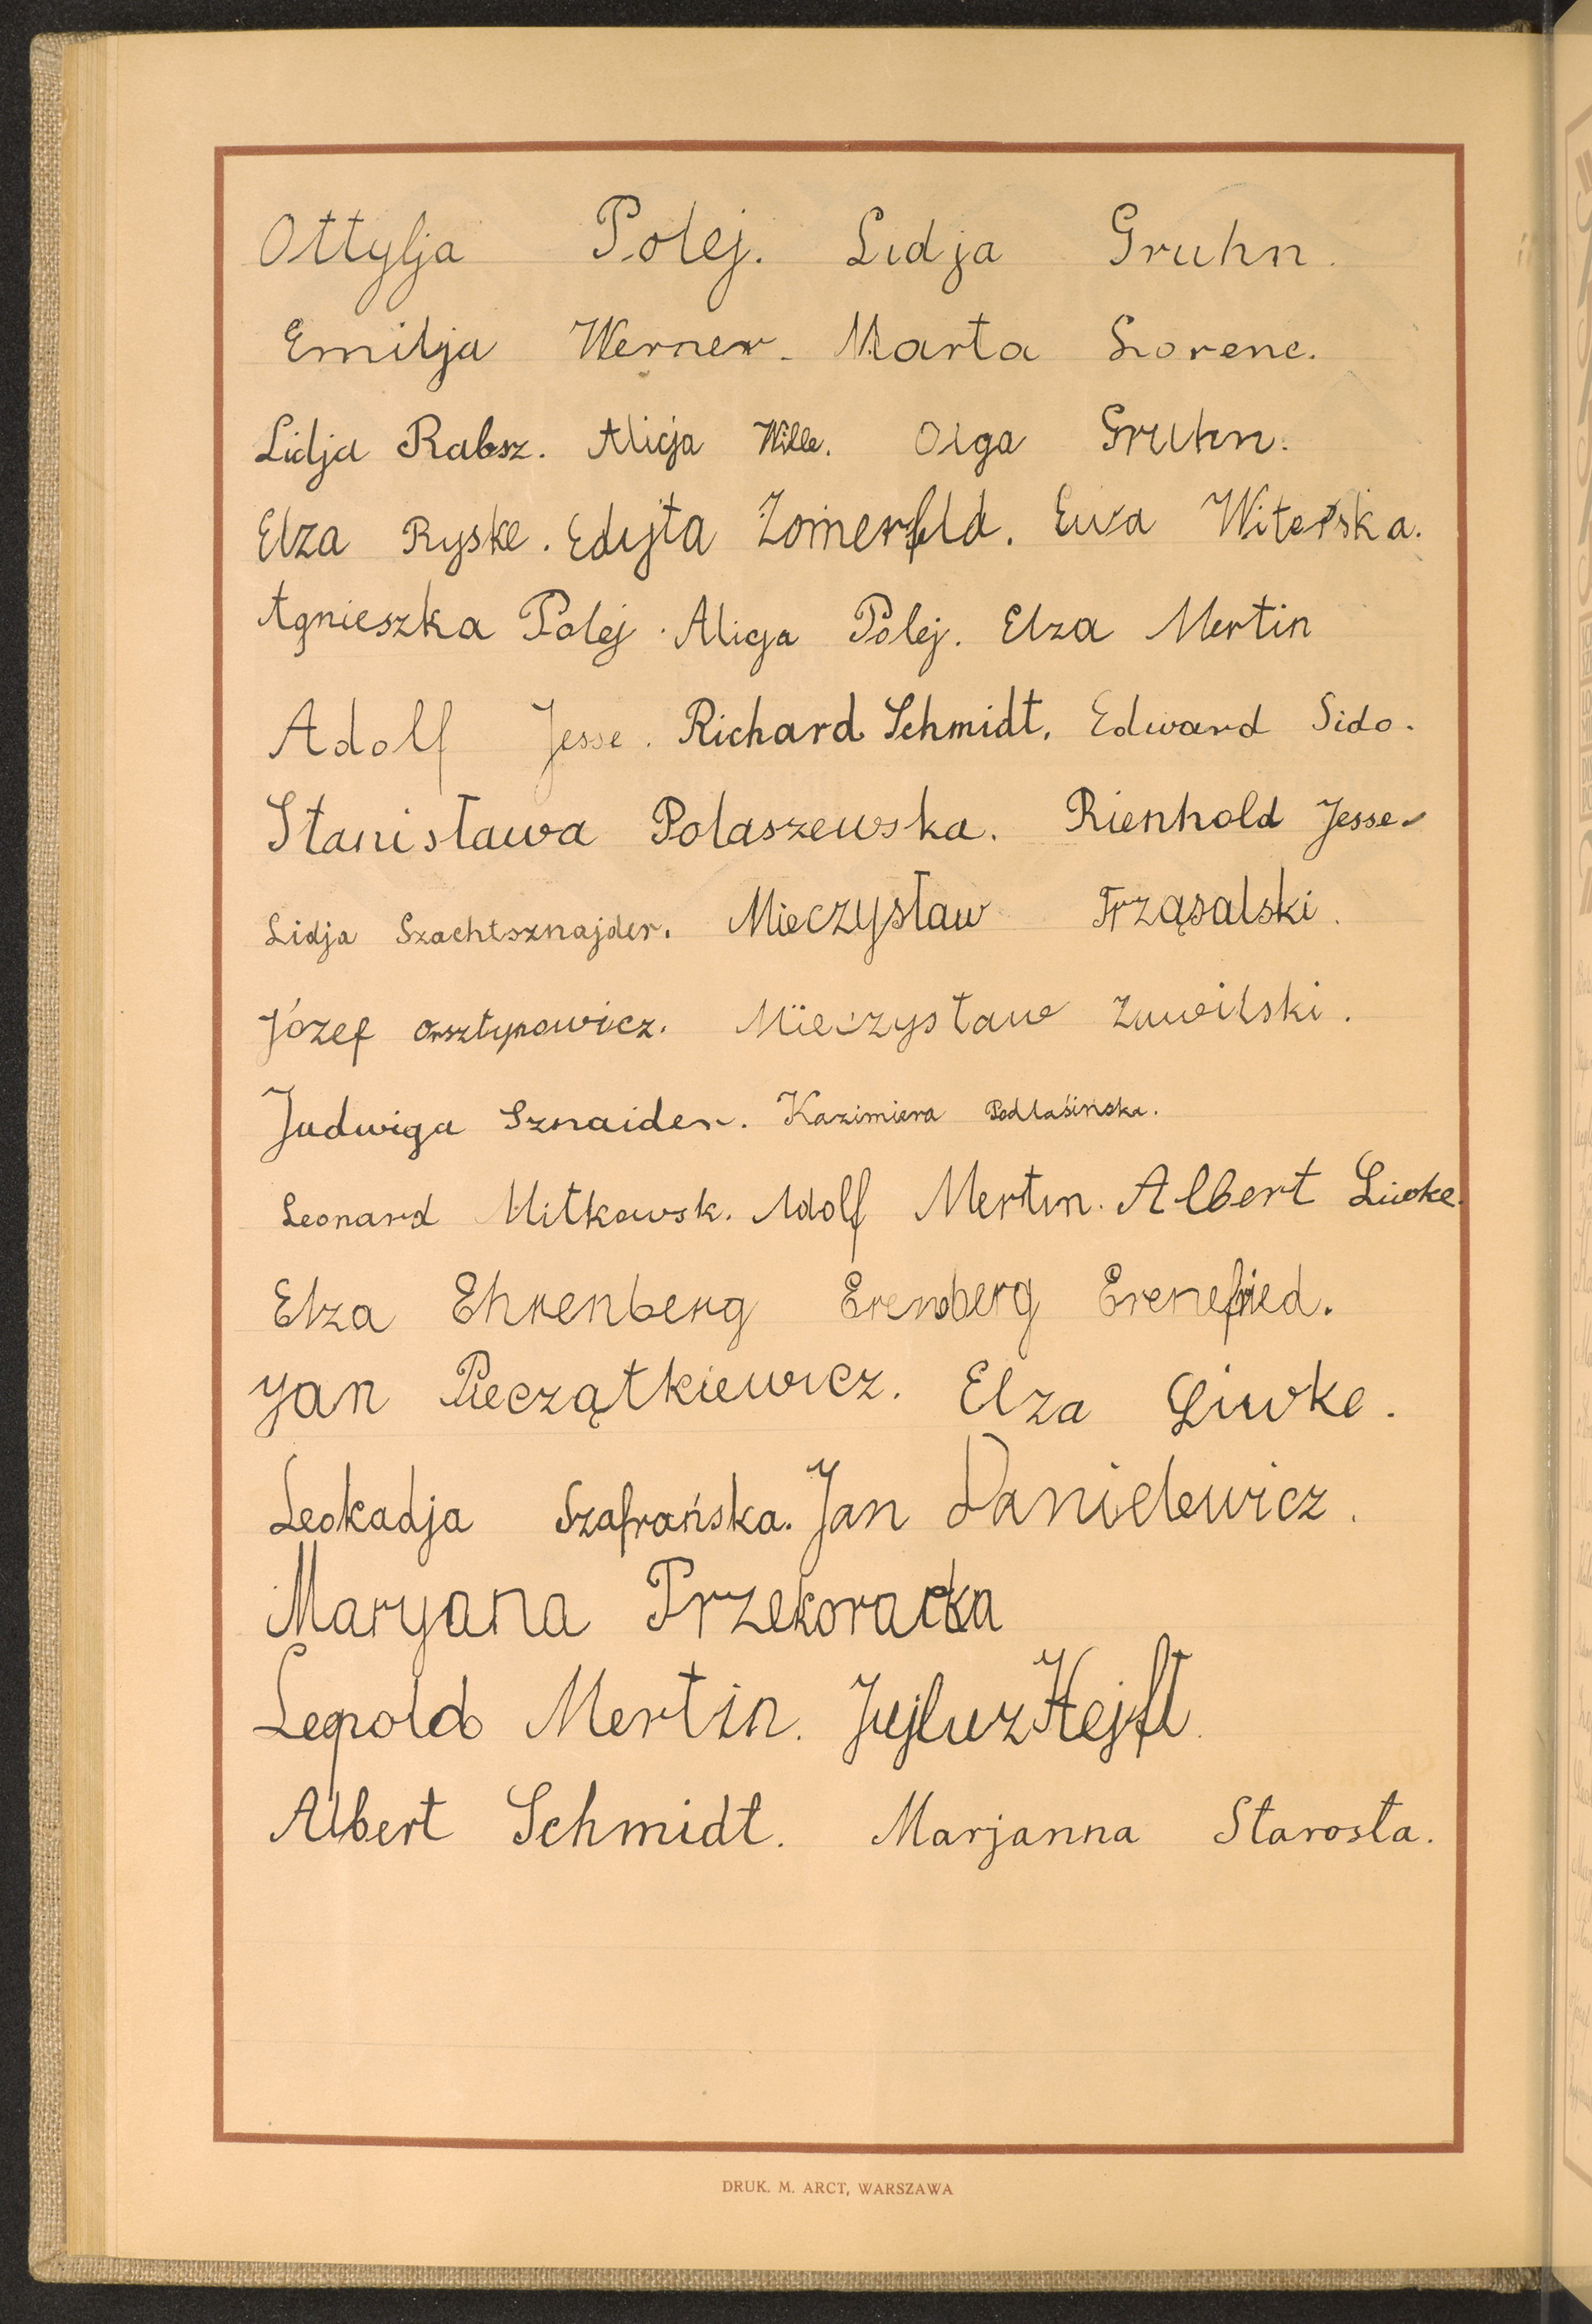 Ottylja Polej. Lidja Gruhn.
Emilja Werner. Marta Lorenc.
Lidja Rabsz. Alicja Wille. Olga Gruhn.
Elza Ryske. Edyta Zomerfeld. Ewa Witerska.
Agnieszka Polej. Alicja Polej. Elza Mertin
Adolf Jesse. Richard Schmidt. Edward Sido.
Stanisława Polaszewska. Rienhold Jesse
Lidja Szachtsznajder. Mieczysław Trząsalski.
Józef Orsztynowicz. Mieczysław Zuwilski.
Jadwiga Sznaider. Kazimiera Podlasińska.
Leonard Mitkowsk. Adolf Mertin. Albert Liwke.
Elza Ehrenberg Erenberg Erenefried.
Jan Pieczątkiewicz. Elza Liwke.
Leokadja Szafrańska. Jan Danielewicz.
Maryana Przekoracka
Lepold Mertin. Jujluz Hejft.
Albert Schmidt. Marjanna Starosta.
DRUK. M. ARCT, WARSZAWA